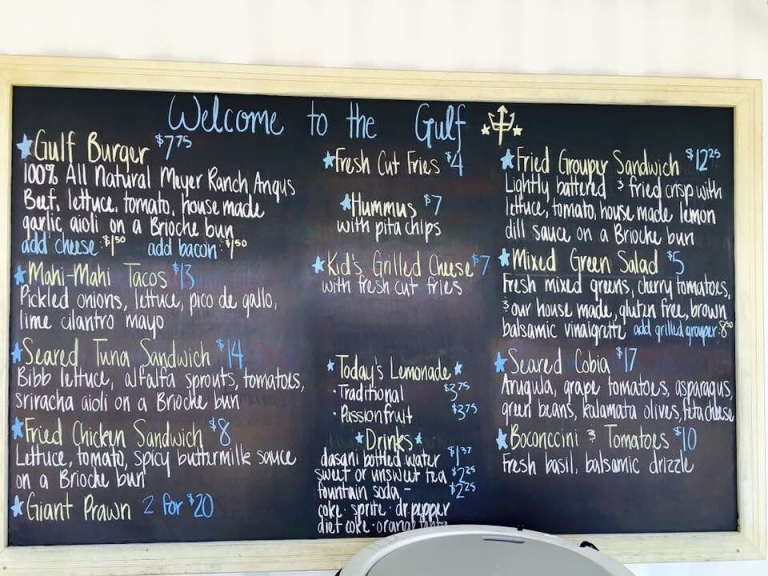 Welcome to the Gulf
Gulf Burger $7.75
100% All Natural Meyer Ranch Angus
Beef, lettuce, tomato, house made
garlic aioli on a Brioche bun
add cheese: $1.50 add bacon: $1.50
Mahi-Mahi Tacos $13
Pickled onions, lettuce, pico de gallo,
lime cilantro mayo
Seared Tuna Sandwich $14
Bibb lettuce, alfalfa sprouts, tomatoes,
sriracha aioli on a Brioche bun
Fried Chicken Sandwich $8
Lettuce, tomato, spicy buttermilk sauce
on a Brioche bun
Giant Prawn 2 for $20
Fresh Cut Fries $4
Hummus $7
with pita chips
Kid's Grilled Cheese $7
with fresh cut fries
Today's Lemonade
· Traditional $3.75
· Passionfruit $3.75
Drinks
dasani bottled water $1.37
sweet or unsweet tea $2.25
fountain soda - $2.25
coke · sprite · dr.pepper
diet coke · orange
Fried Grouper Sandwich $12.25
Lightly battered & fried crisp with
lettuce, tomato, house made lemon
dill sauce on a Brioche bun
Mixed Green Salad $5
Fresh mixed greens, cherry tomatoes,
& our house made, gluten free, brown
balsamic vinaigrette add grilled grouper: 8.00
Seared Cobia $17
Arugula, grape tomatoes, asparagus,
green beans, kalamata olives, feta cheese
Boconccini & Tomatoes $10
Fresh basil, balsamic drizzle